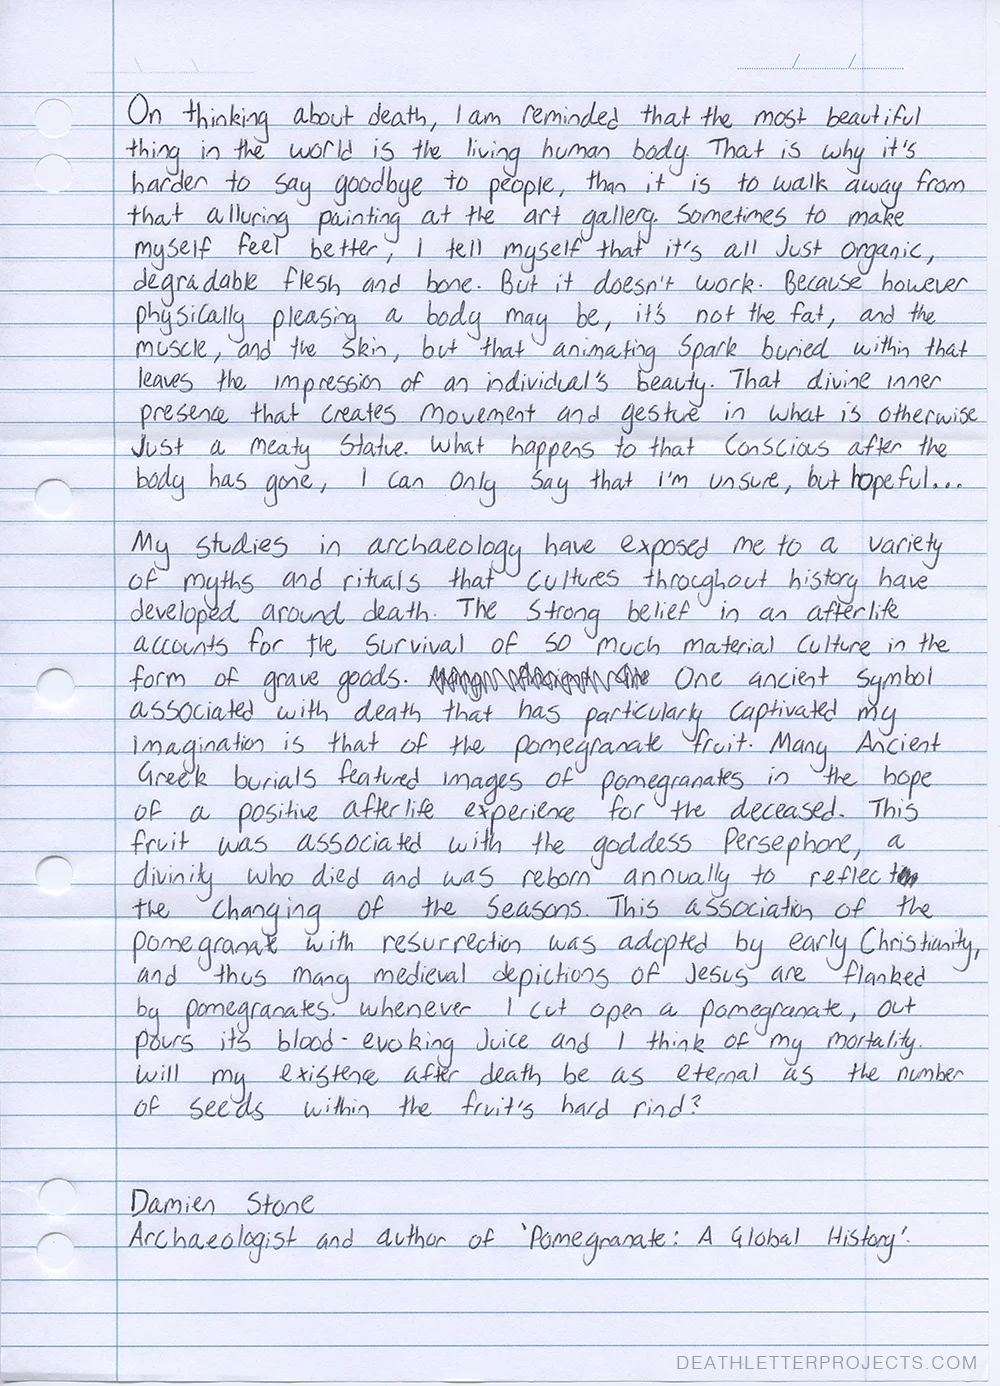 On thinking about death, I am reminded that the most beautiful
thing in the world is the living human body. That is why it's
harder to say goodbye to people, than it is to walk away from
that alluring painting at the art gallery. Sometimes to make
myself feel better, I tell myself that it's all just organic,
degradable flesh and bone. But it doesn't work. Because however
physically pleasing a body may be, it's not the fat, and the
muscle, and the skin, but that animating spark buried within that
leaves the impression of an individual's beauty. That divine inner
presence that creates movement and gesture in what is otherwise
just a meaty statue. What happens to that conscious after the
body has gone, I can only say that I'm unsure, but hopeful...
My studies in archaeology have exposed me to a variety
of myths and rituals that cultures throughout history have
developed around death. The strong belief in an afterlife
accounts for the survival of so much material culture in the
form of grave goods. One ancient symbol
associated with death that has particularly captivated my
imagination is that of the pomegranate fruit. Many Ancient
Greek burials featured images of pomegranates in the hope
of a positive afterlife experience for the deceased. This
fruit was associated with the goddess Persephone, a
divinity who died and was reborn annually to reflect
the changing of the seasons. This association of the
pomegranate with resurrection was adopted by early Christianity,
and thus many medieval depictions of Jesus are flanked
by pomegranates. Whenever I cut open a pomegranate, out
pours its blood-evoking juice and I think of my mortality.
Will my existence after death be as eternal as the number
of seeds within the fruit's hard rind?
Damien Stone
Archaeologist and author of 'Pomegranate: A Global History'.
DEATHLETTERPROJECTS.COM